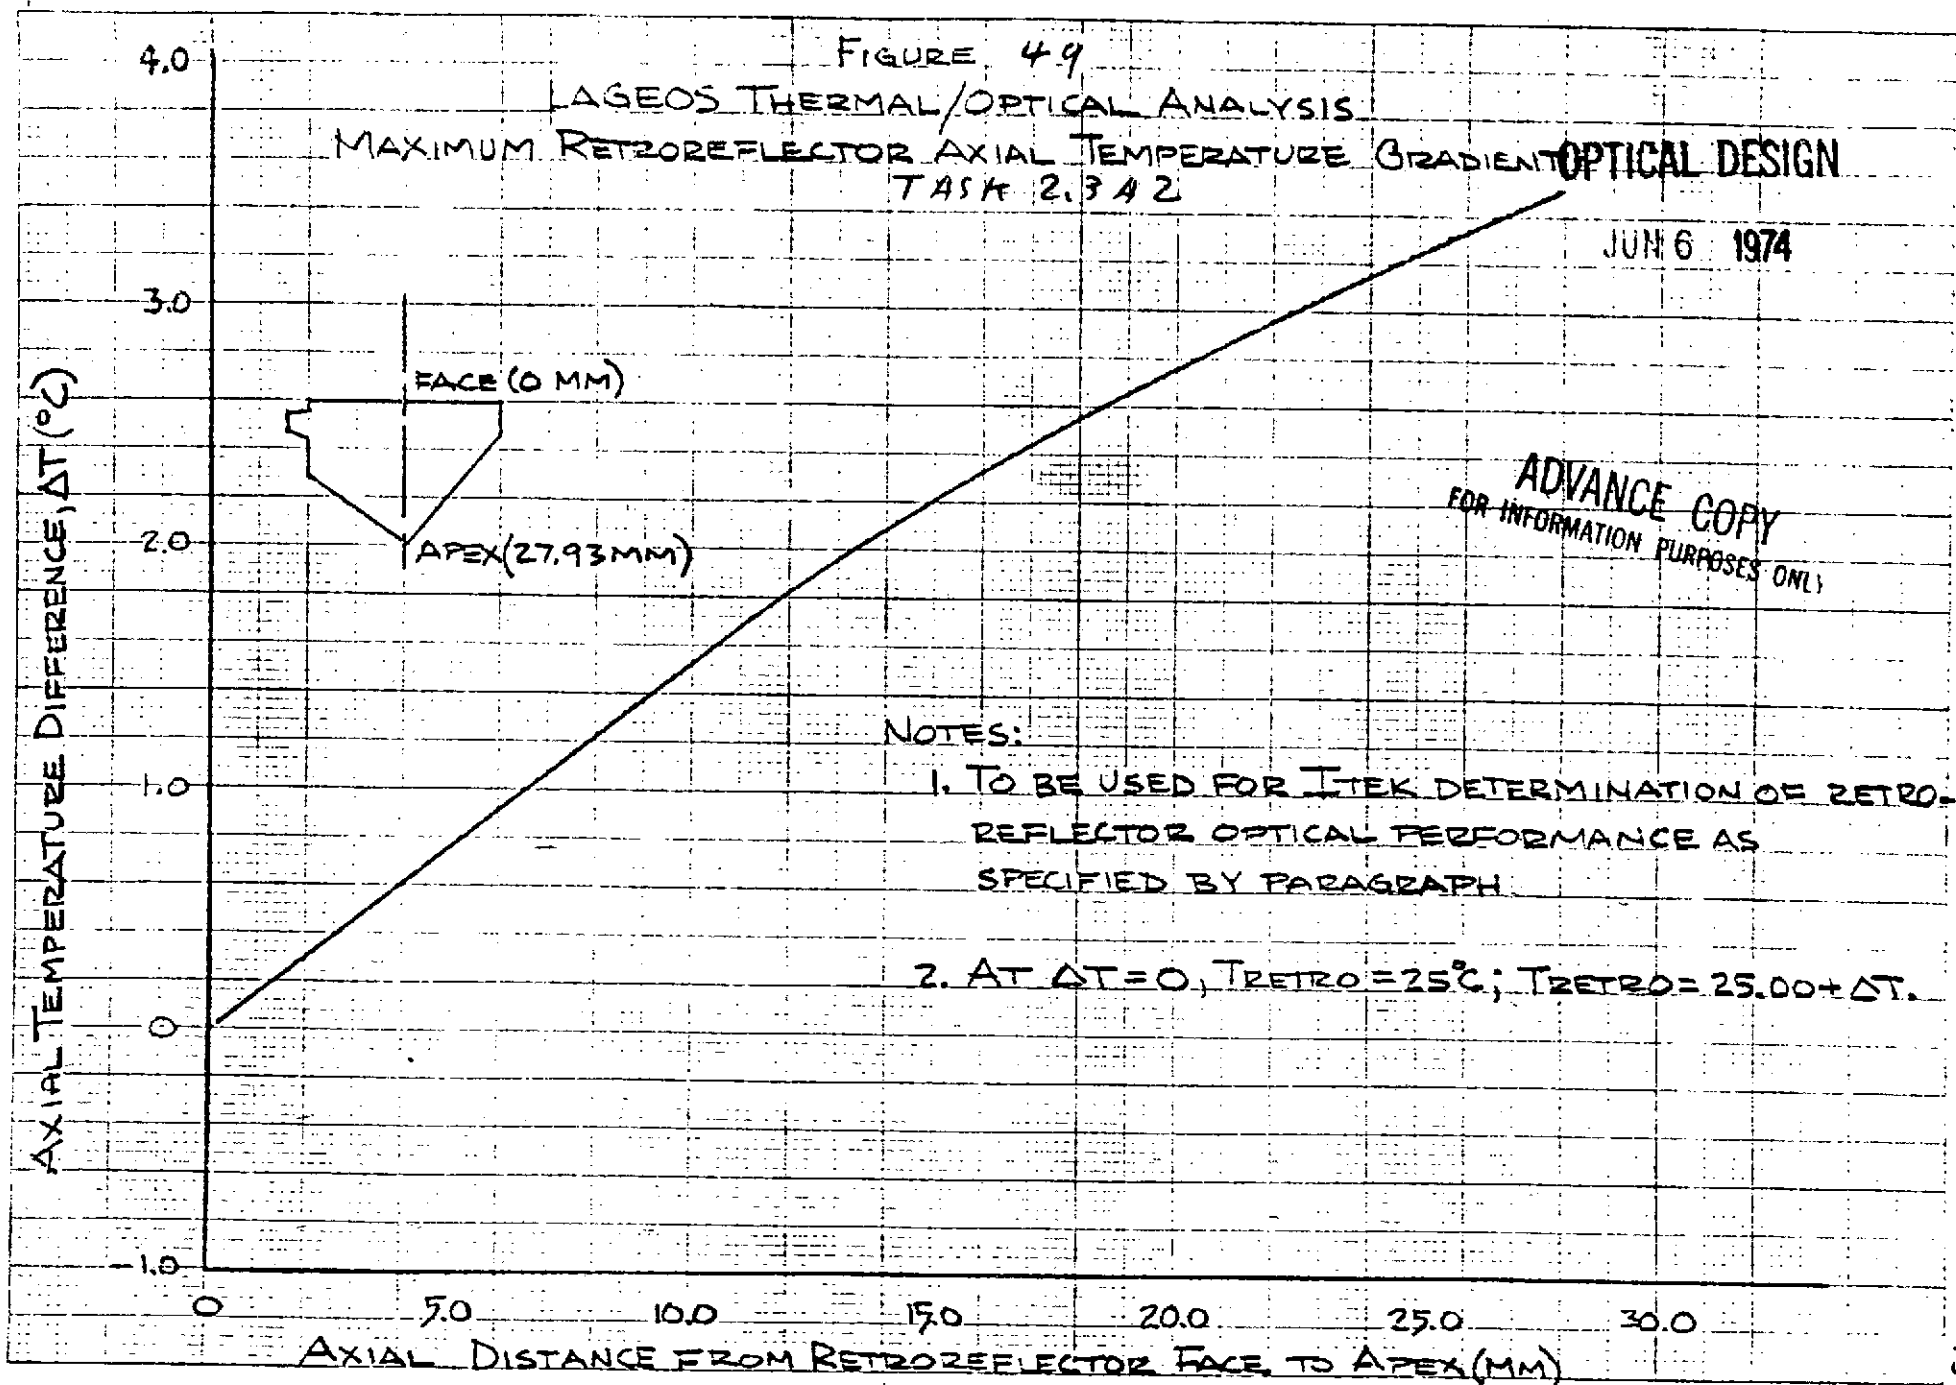 FIGURE 49
LAGEOS THERMAL/OPTICAL ANALYSIS
MAXIMUM RETROREFLECTOR AXIAL TEMPERATURE GRADIENT
TASK 2.3A2
OPTICAL DESIGN
JUN 6 1974
4.0
3.0
2.0
1.0
0
-1.0
AXIAL TEMPERATURE DIFFERENCE, ΔT (°C)
FACE (0 MM)
APEX (27.93 MM)
ADVANCE COPY
FOR INFORMATION PURPOSES ONLY
NOTES:
1. TO BE USED FOR ITEK DETERMINATION OF RETRO-
REFLECTOR OPTICAL PERFORMANCE AS
SPECIFIED BY PARAGRAPH
2. AT ΔT = 0, TRETRO = 25°C; TRETRO = 25.00 + ΔT.
0 5.0 10.0 15.0 20.0 25.0 30.0
AXIAL DISTANCE FROM RETROREFLECTOR FACE TO APEX (MM)